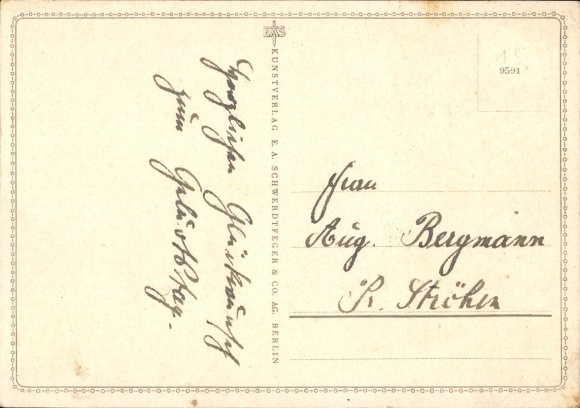 Herzlichen Glückwunsch
zum Geburtstag.
EAS
KUNSTVERLAG E. A. SCHWERDTFEGER & CO. AG. BERLIN
15
9591
Frau
Aug. Bergmann
Pr. Ströhen